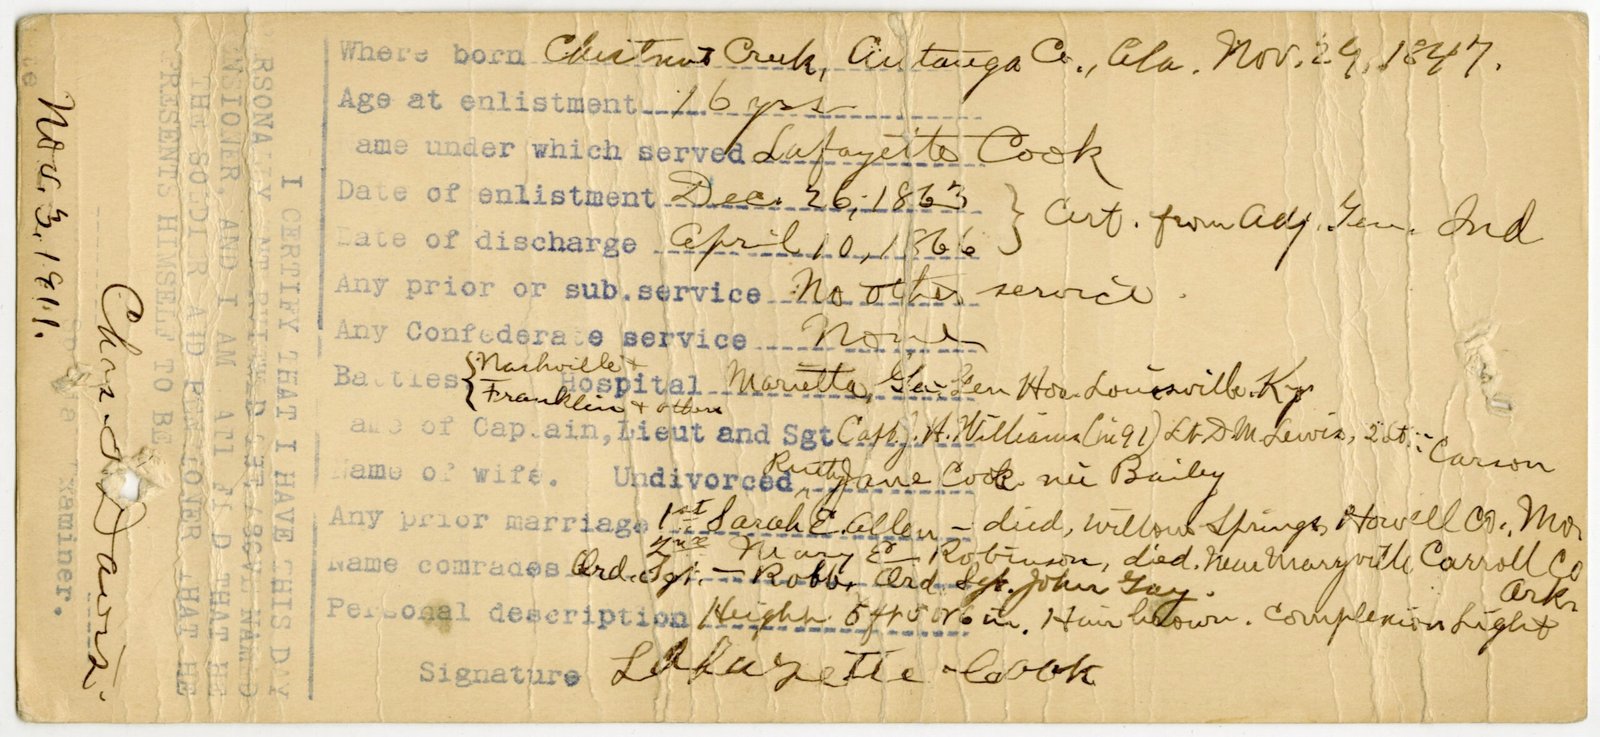 Where born Chestnut Creek, Autauga Co., Ala. Nov. 24, 1847.
Age at enlistment 16 yrs
ame under which served Lafayette Cook
Date of enlistment Dec. 26, 1863
Date of discharge April 10, 1866 } Cert. from Adj. Gen. Ind
Any prior or sub.service No other service.
Any Confederate service None
Battles { Nashville + Franklin + others Hospital Marietta, Ga. Gen Hos. Louisville. Ky
ame of Captain, Lieut and Sgt Capt J. H. Williams (in 91) Lt. D M Lewis, 2 Lt. - Carson
Name of wife. Undivorced Ruth Jane Cook neé Bailey
Any prior marriage 1st Sarah E. Allen - died, Willow Springs, Howell Co. Mo.
2nd Mary E Robinson, died. Near Maryville Carroll Co Ark
Name comrades Ord. Sgt. - Robb. Ord Sgt. John Gay.
Personal description Height 5 ft 5 or 6 in. Hair brown. Complexion Light
Signature Lafayette Cook
I CERTIFY THAT I HAVE THIS DAY
RSONALLY
NSIONER, AND I AM THAT HE
THE SOLDIER AND THAT HE
PRESENTS HIMSELF TO BE
Chas. Davis
xaminer.
Nov. 3, 1911.